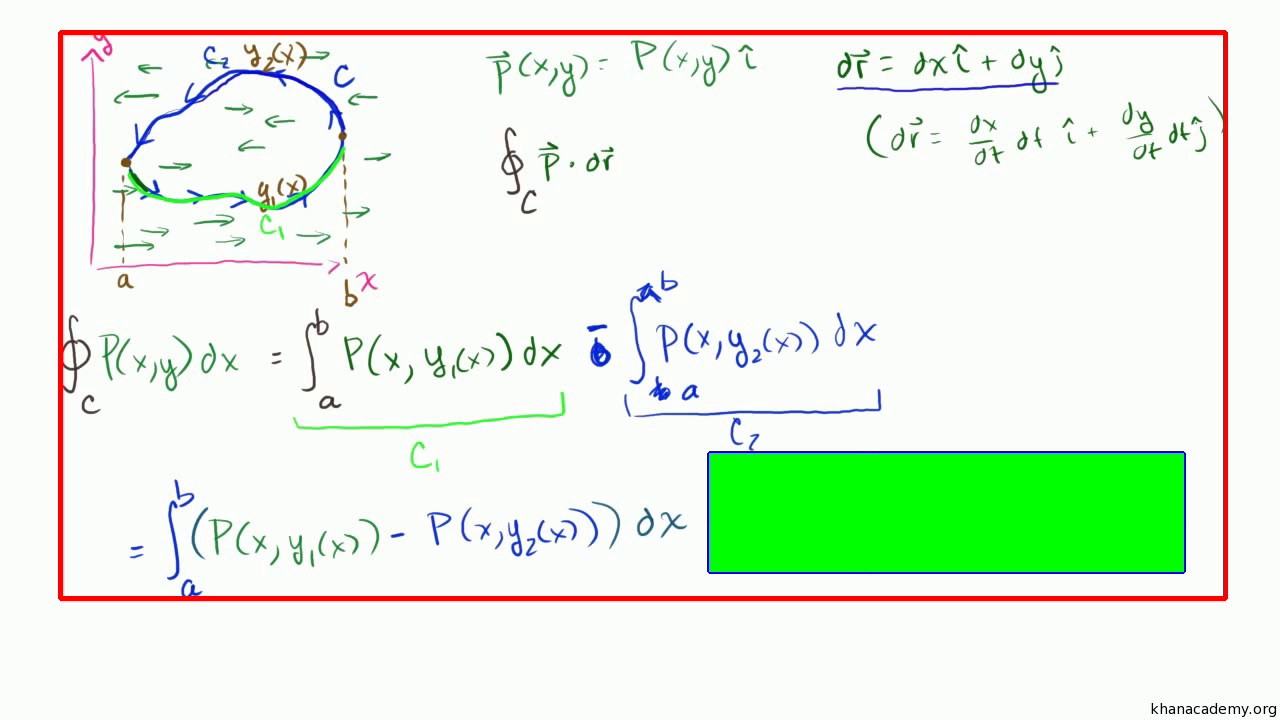 y
C₂ y₂(x)
C
y₁(x)
C₁
a
b x
p⃗(x,y) = P(x,y) î
dr⃗ = dx î + dy ĵ
(dr⃗ = dx/dt dt î + dy/dt dt ĵ)
∮_C p⃗ · dr⃗
∮_C P(x,y) dx = ∫_a^b P(x, y₁(x)) dx - ∫_a^b P(x, y₂(x)) dx
C₁ C₂
= ∫_a^b (P(x, y₁(x)) - P(x, y₂(x))) dx
khanacademy.org